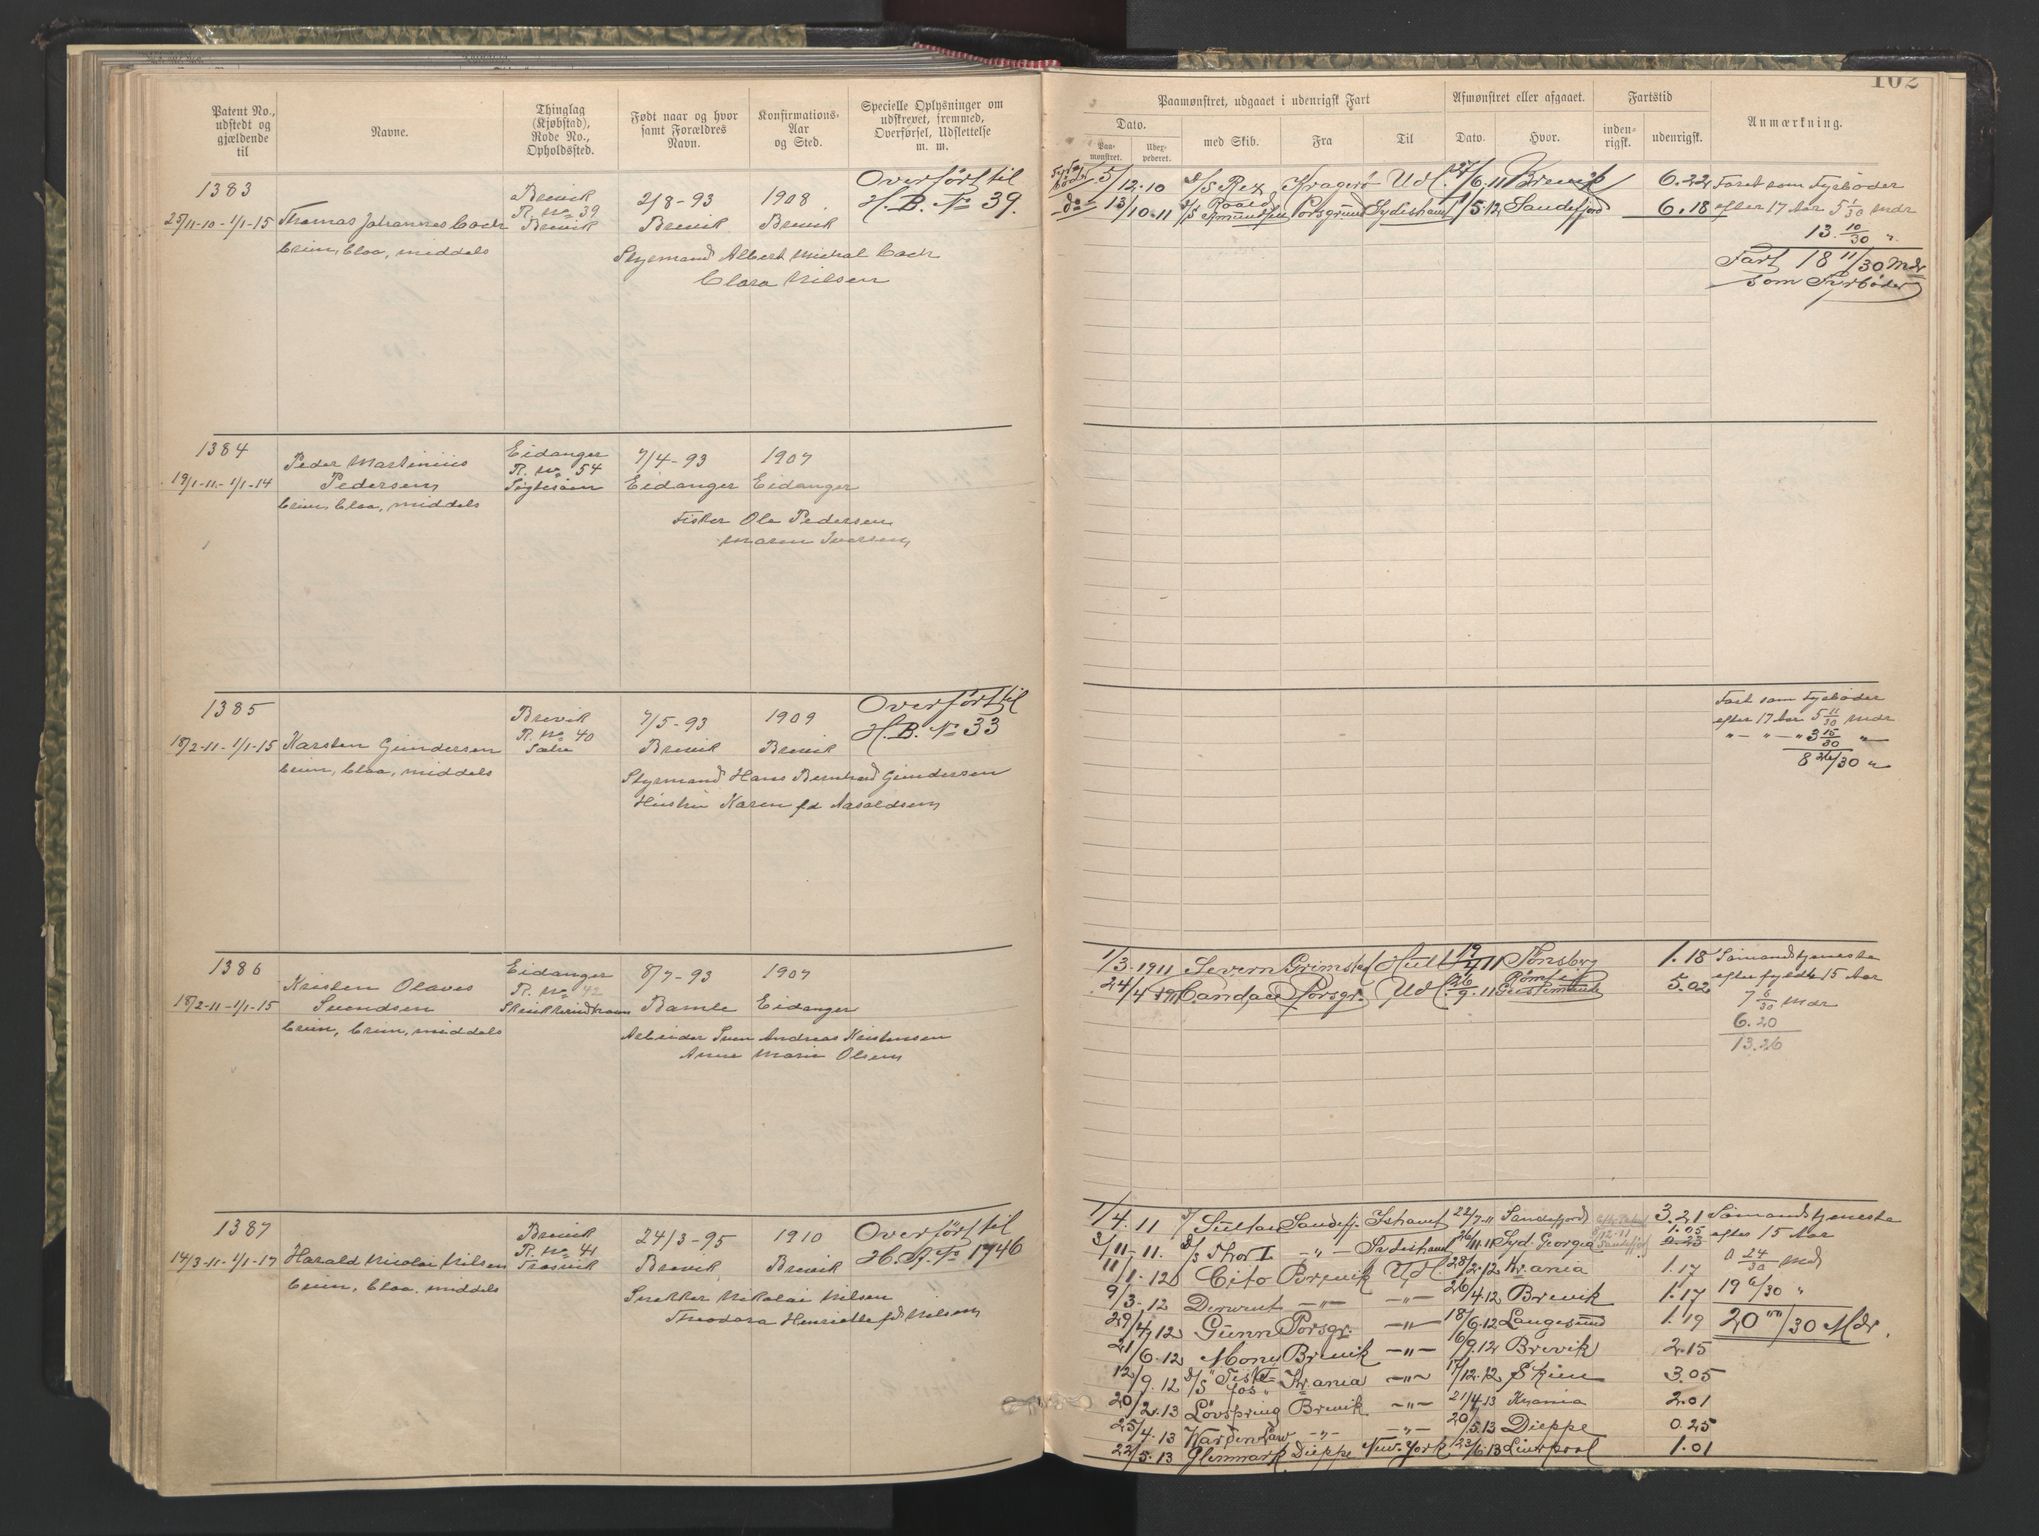 102
Patent No., udstedt og gjældende til
Navne.
Thinglag (Kjøbstad), Rode No., Opholdssted.
Født naar og hvor samt Forældres Navn.
Konfirmations-Aar og Sted.
Specielle Oplysninger om udskrevet, fremmed, Overførsel, Udslettelse m. m.
Paamønstret, udgaaet i udenrigsk Fart
Afmønstret eller afgaaet.
Fartstid
Anmærkning.
Dato.
Paa-mønstret.
Udex-pederet.
med Skib.
Fra
Til
Dato.
Hvor.
inden-rigsk.
udenrigsk.
1383
25/11-10-1/1-15
Thomas Johannes Coch
brun, blaa, middels
Brevik
R. No 39
Brevik
2/8-93
Brevik
1908
Brevik
Overført til
H.B. No 39.
Styrmand Albert Michal Coch
Clara Nilsen
5/12-10 D/S Rex Kragerø Udl. 27/6.11 Brevik 6.22
Do 13/10-11 D/S Roald Amundsen Porsgrund Sydishavet /5.12 Sandefjord 6.18
Faret som Fyrbøder
efter 17 Aar 5 1/30 Mdr
13 10/30 "
Fart 18 11/30 Mdr
som Fyrbøder
1384
19/1-11-1/1-14
Peder Martinius
Pedersen
brun, blaa, middels
Eidanger
R. No 54
7/4-93
Eidanger
1907
Eidanger
Fisker Ole Pedersen
Maren Iversen
1385
18/2-11-1/1-15
Karsten Gundersen
brun, blaa, middels
Brevik
R. No 40
7/5-93
Brevik
1909
Brevik
Overført til
H.B. No 33
Styrmand Hans Bernhard Gundersen
Hustru Karen fd Aasoldsen
Fart som Fyrbøder
efter 17 Aar 5 11/30 Mdr
" — " — " 3 15/30 "
8 26/30 "
1386
18/2-11-1/1-15
Kristen Olaves
Svendsen
brun, brun, middels
Eidanger
R. No 42
8/7-93
Bamle
1907
Eidanger
Arbeider Sven Andreas Kristensen
Anne Marie Olsen
1/3.1911 Severn Grimstad Hull 19/4 11 Tønsberg 1.18
24/4 1911 Candace Porsgr. Udl. 26/9.11 5.02
Sømandstjeneste
efter fyldte 15 Aar
7 6/30 Mdr
6.20
13.26
1387
14/3-11-1/1-17
Harald Nicolai Nilsen
brun, blaa, middels
Brevik
R. No 41
Trosvik
24/3-95
Brevik
1910
Brevik
Overført til
H.A. No 1946
Snekker Nikolai Nilsen
Theodora Henriette fd Nilsen
1/4.11 Sultan Sandefj. Ishavet 22/7-11 Sandefjord 3.21
2/11-11. D/S Thor I — " — Sydishavet 26/11.11 Syd. Georgia 1.05
11/1-12 Cito Brevik Udl 28/2.12 Kr.ania 1.17
9/3-12 Derwent — " — — " — 26/4.12 Brevik 1.17
29/4.12 Gunn Porsgr. — " — 18/6.12 Langesund 1.19
21/6.12 Mony Brevik — " — 16/9.12 Brevik 2.15
12/9.12 D/S Kr.ania — " — 17/12.12 Skien 3.05
20/2.13 Løvspring Brevik — " — 21/4.13 Krania 2.01
25/4.13 — " — — " — 20/5.13 Dieppe 0.25
22/5.13 Glenmark Dieppe New-York 23/6.13 Liverpool 1.01
Sømandstjeneste
efter 15 Aar
0 24/30 Md
19 6/30 "
20 /30 Mdr.